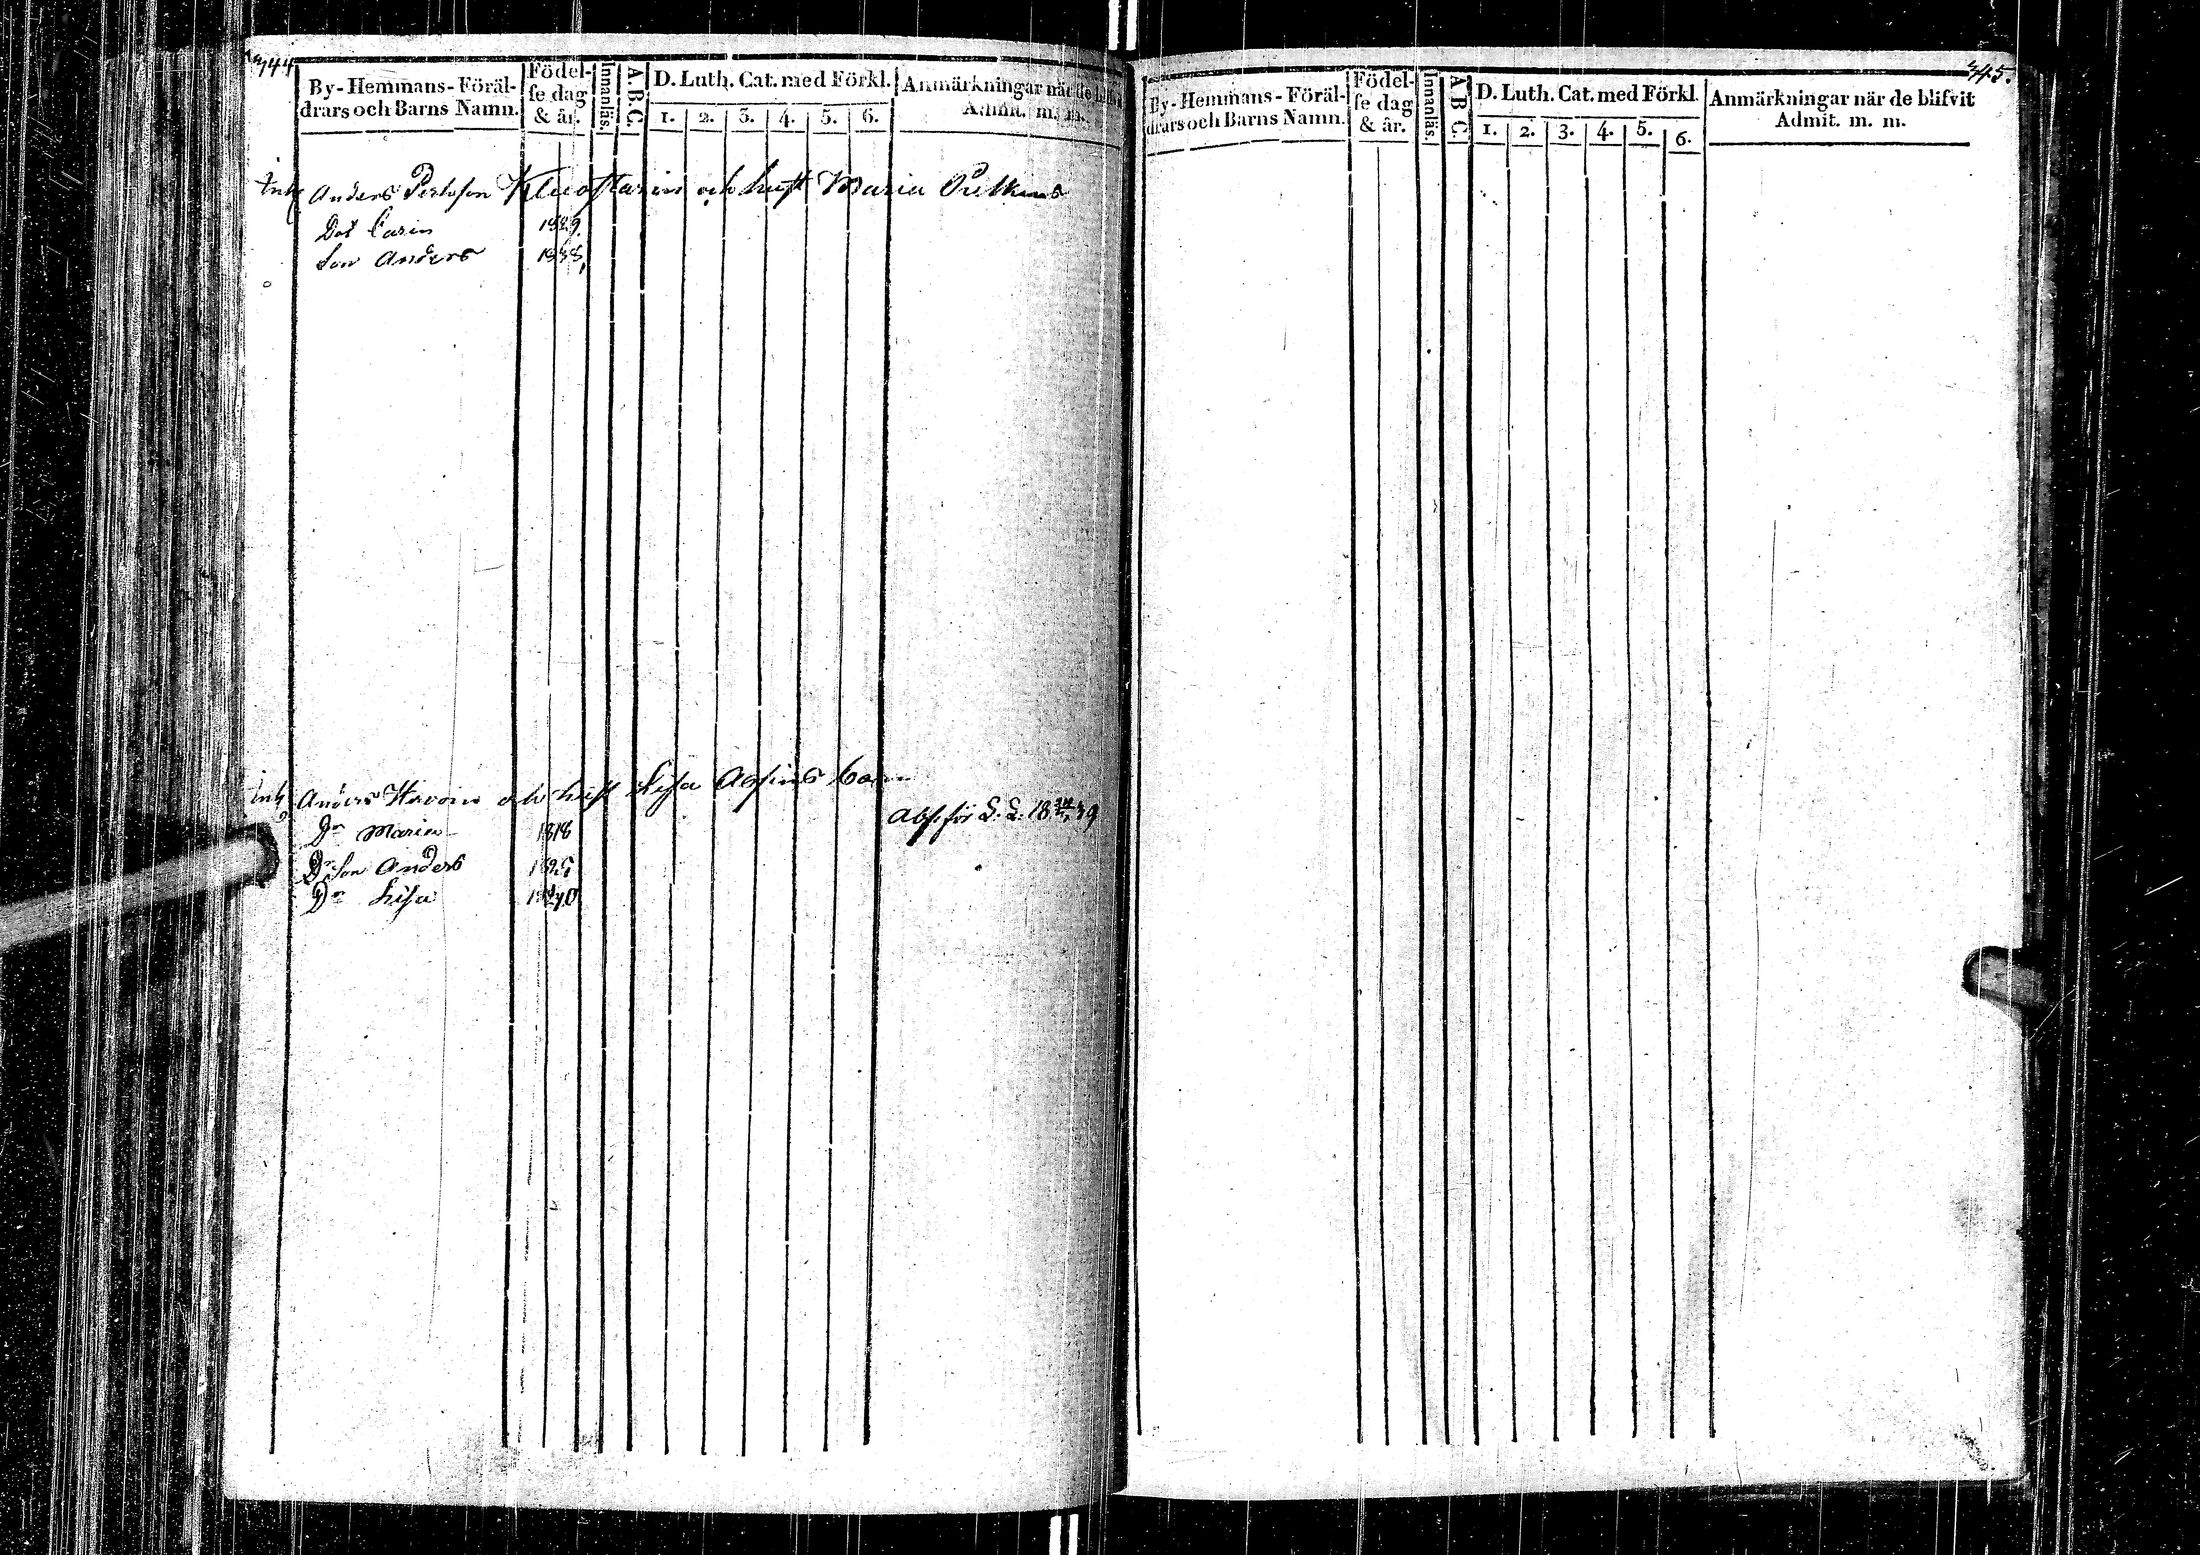 344
By-Hemmans-Föräl-
drars och Barns Namn.
Födel-
se dag
& år.
Innanläs.
A.B.C.
D. Luth. Cat. med Förkl.
1. 2. 3. 4. 5. 6.
Anmärkningar när de blifvit
Admit. m. m.
Inh Anders och hust Maria
Dot Carin 1829.
Son Anders 1838
Inh Anders och hust Lisa barn
Dr Maria 1818
Dr Son Anders 1825
Dr Lisa
345.
By-Hemmans-Föräl-
drars och Barns Namn.
Födel-
se dag
& år.
Innanläs.
A B C.
D. Luth. Cat. med Förkl.
1. 2. 3. 4. 5. 6.
Anmärkningar när de blifvit
Admit. m. m.